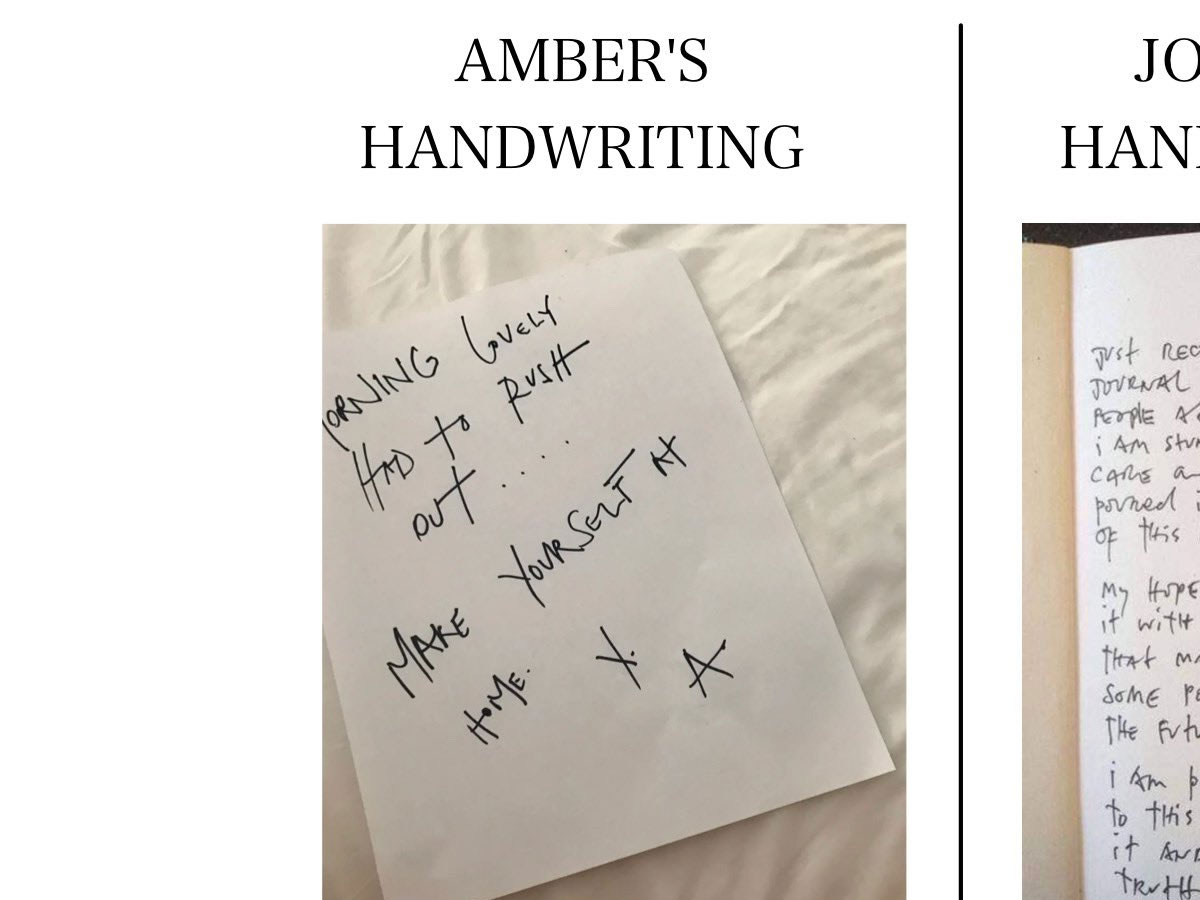 AMBER'S
HANDWRITING
ORNING LOVELY
HAD to RUSH
OUT ....
MAKE YOURSELF At
HOME. X.
A
JO
HAN
just REC
JOURNAL
PEOPLE
i AM stu
CARE a
poured i
OF tHis
My HOPE
it WITH
tHAt MA
SOME PE
tHE Futu
i AM p
to tHis
it AND
tRutH